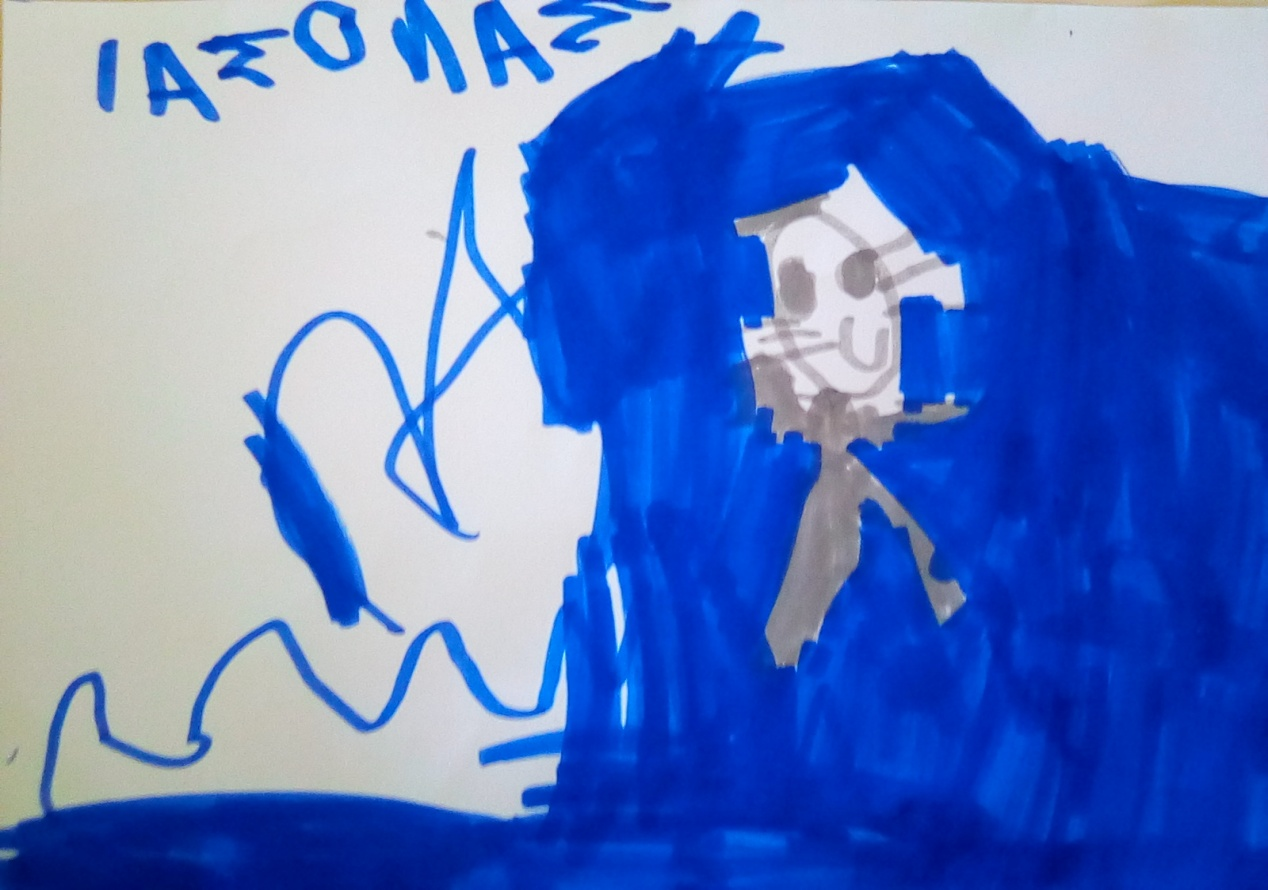 ΙΑΣΟΝΑΣ